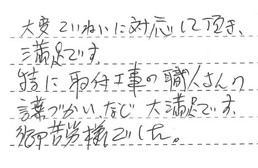 大変ていねいに対応して頂き、
満足です。
特に取付工事の職人さんの
言葉づかいなど大満足です。
御苦労様でした。